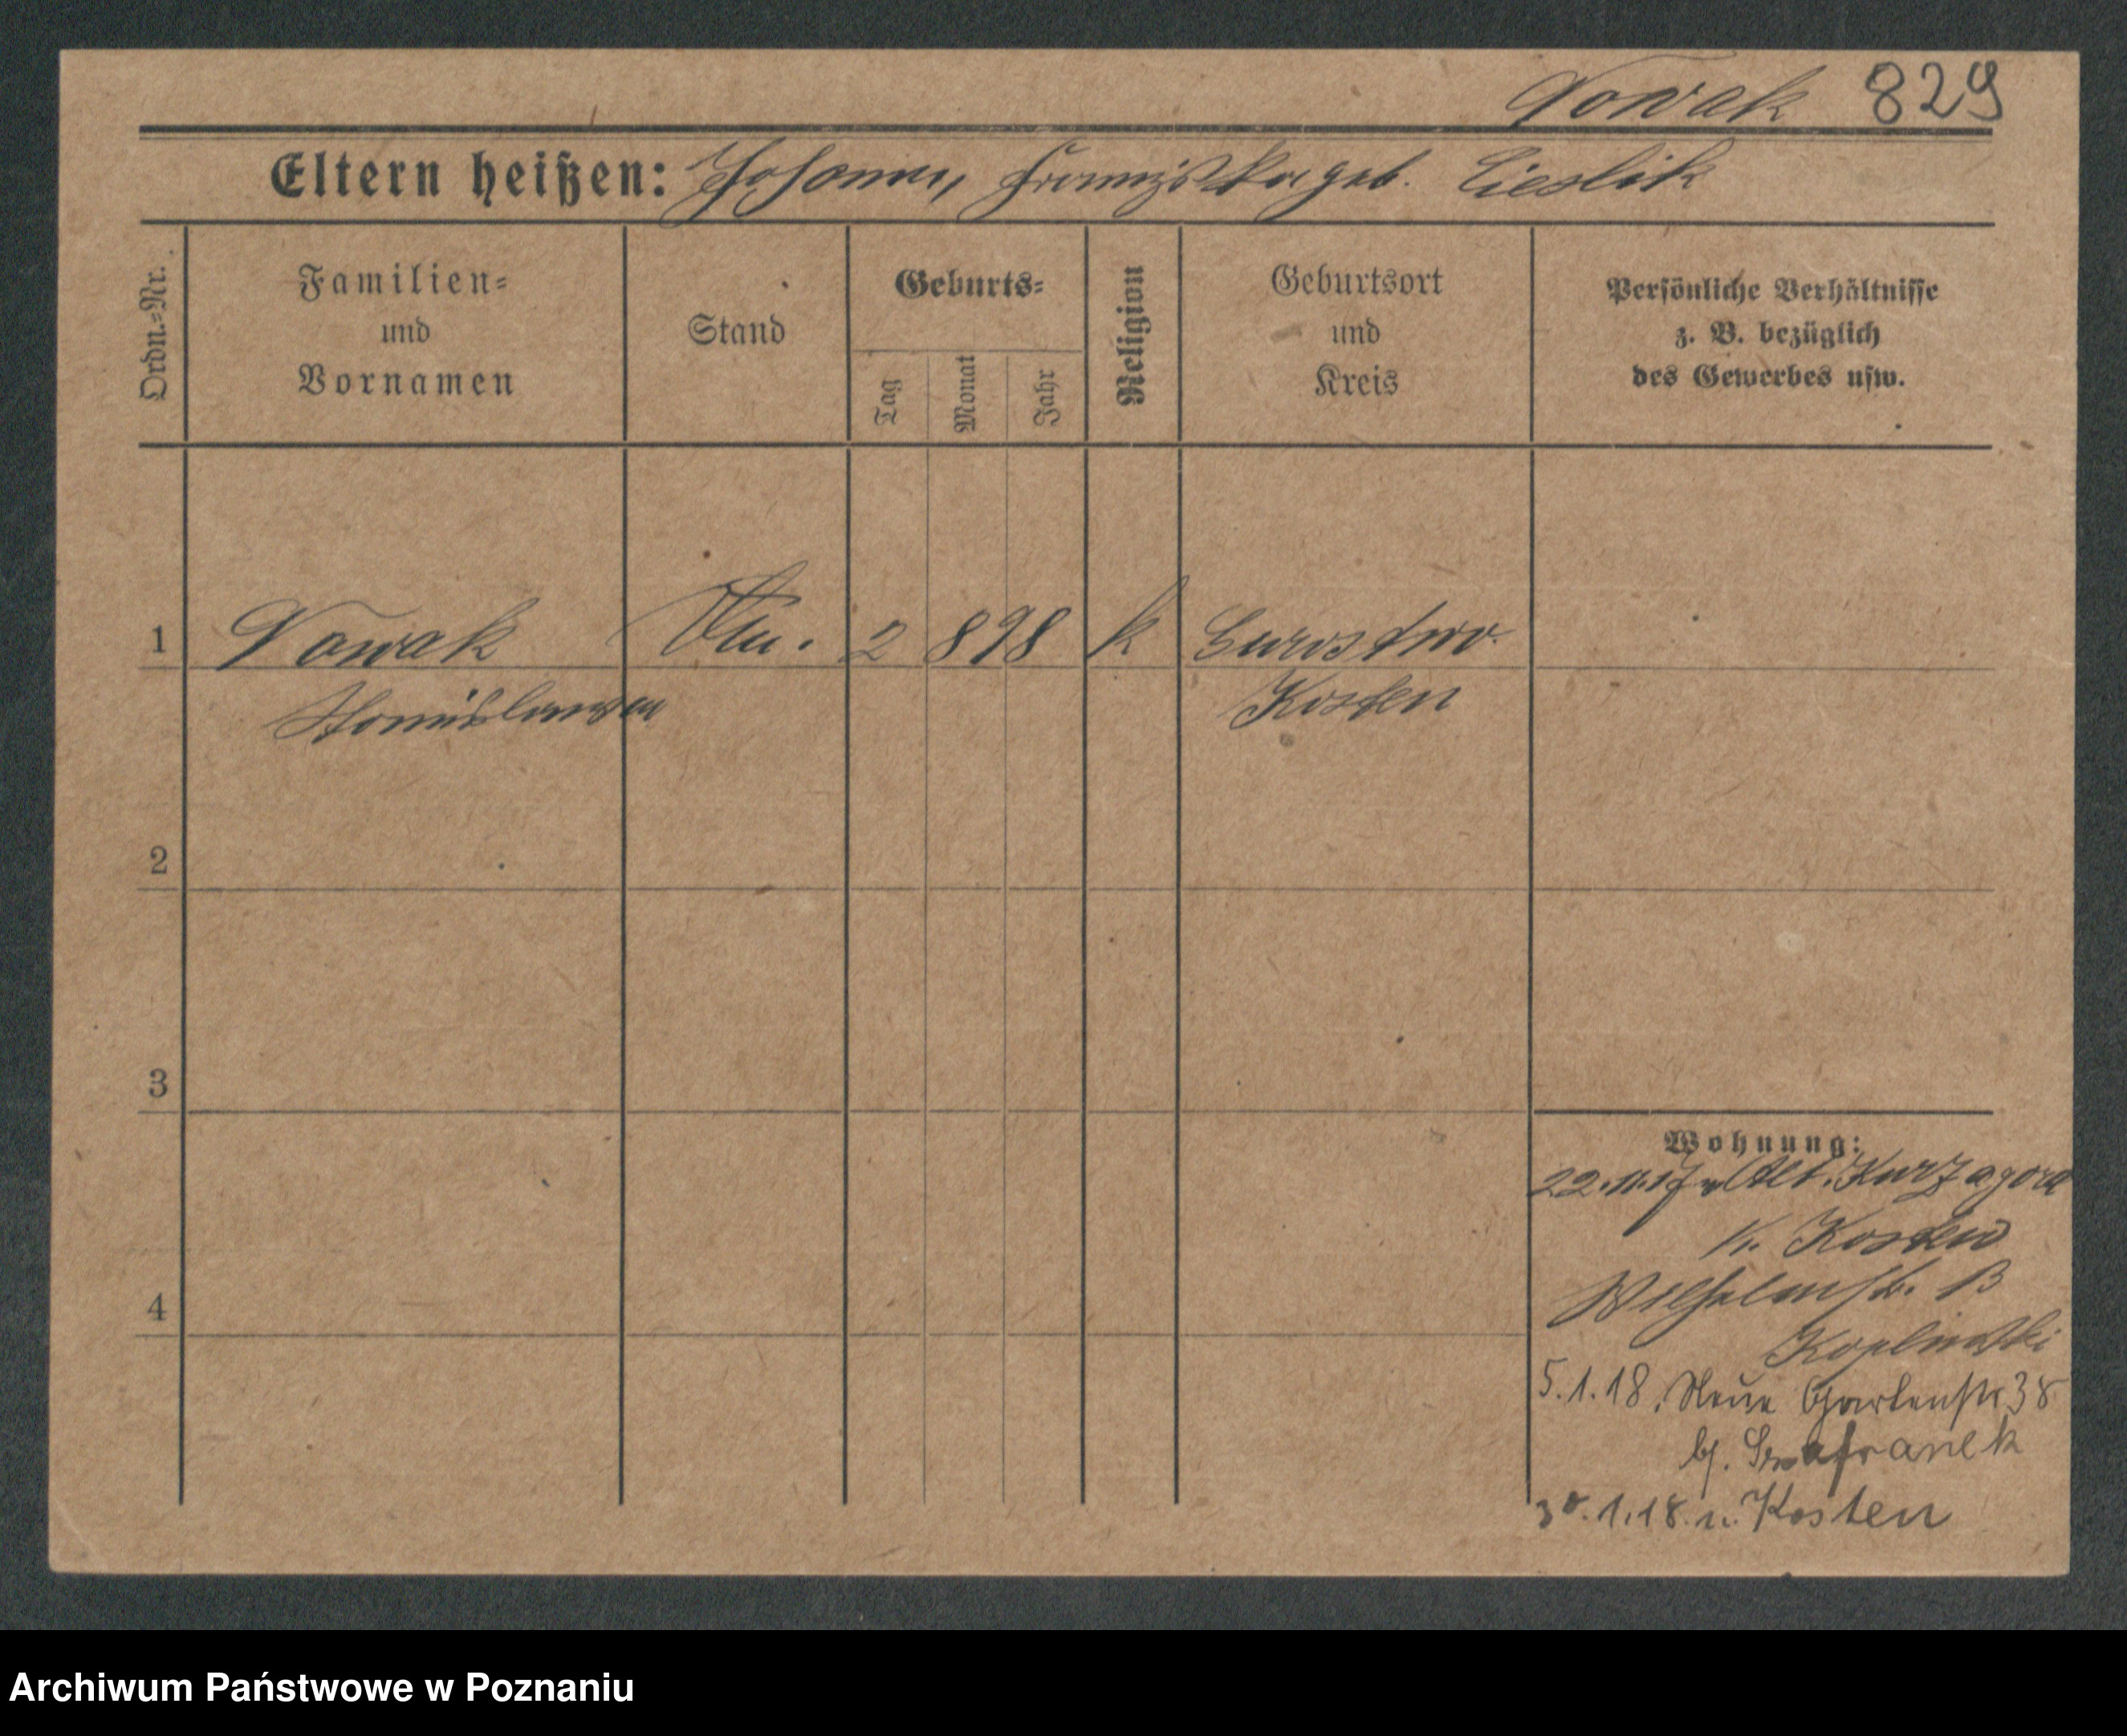 Nowak 829
Eltern heißen: Johann, Franziska geb. Cieslik
Ordn.-Nr.
Familien-
und
Vornamen
Stand
Geburts-
Tag
Monat
Jahr
Religion
Geburtsort
und
Kreis
Persönliche Verhältnisse
z. B. bezüglich
des Gewerbes usw.
1 Nowak 2 8 98 k
Stanislawa Kosten
2
3
4
Wohnung:
22.11.17 v Alt. Kurzagora
K. Kosten
Wilhelmstr.
5.1.18. Neue Gartenstr 38
b/. Szafranek
30.1.18. n. Kosten
Archiwum Państwowe w Poznaniu